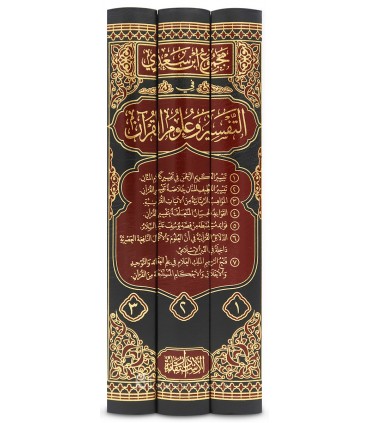 مجموع ابن سعدي
في
التفسير وعلوم القرآن
١ تيسير الكريم الرحمن في تفسير كلام المنان.
٢ تيسير اللطيف المنان خلاصة تفسير القرآن.
٣ المواهب الربانية من الآيات القرآنية.
٤ القواعد الحسان المتعلقة بتفسير القرآن.
٥ فوائد مستنبطة من قصة يوسف عليه السلام.
٦ الدلائل القرآنية في أن العلوم والأعمال النافعة العصرية
داخلة في الدين الإسلامي.
٧ فتح الرحيم الملك العلام في علم العقائد والتوحيد
والأخلاق والأحكام المستنبطة من القرآن.
١ ٢ ٣